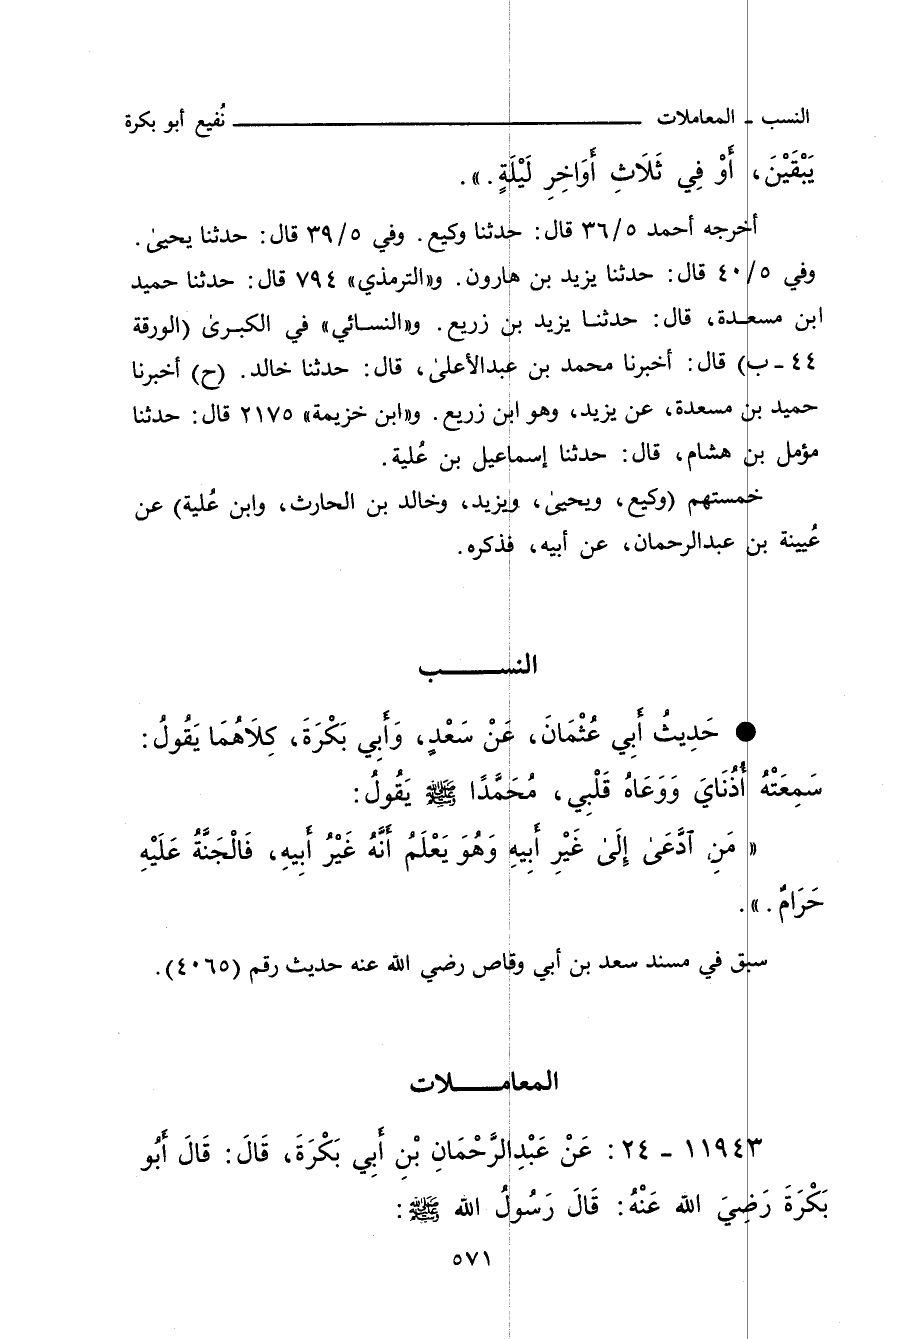 النسب ـ المعاملات ـــــــــــ نُفيع أبو بكرة
يَبْقَيْنَ، أَوْ فِي ثَلَاثِ أَوَاخِرِ لَيْلَةٍ.».
أخرجه أحمد ٣٦/٥ قال: حدثنا وكيع. وفي ٣٩/٥ قال: حدثنا يحيىٰ.
وفي ٤٠/٥ قال: حدثنا يزيد بن هارون. و«الترمذي» ٧٩٤ قال: حدثنا حميد
ابن مسعدة، قال: حدثنا يزيد بن زريع. و«النسائي» في الكبرىٰ (الورقة
٤٤ ـ ب) قال: أخبرنا محمد بن عبدالأعلىٰ، قال: حدثنا خالد. (ح) أخبرنا
حميد بن مسعدة، عن يزيد، وهو ابن زريع. و«ابن خزيمة» ٢١٧٥ قال: حدثنا
مؤمل بن هشام، قال: حدثنا إسماعيل بن عُلية.
خمستهم (وكيع، ويحيىٰ، ويزيد، وخالد بن الحارث، وابن عُلية) عن
عُيينة بن عبدالرحمان، عن أبيه، فذكره.
النســــــب
● حَدِيثُ أَبِي عُثْمَانَ، عَنْ سَعْدٍ، وَأَبِي بَكْرَةَ، كِلَاهُمَا يَقُولُ:
سَمِعَتْهُ أُذُنَايَ وَوَعَاهُ قَلْبِي، مُحَمَّدًا ﷺ يَقُولُ:
« مَنِ ٱدَّعَىٰ إِلَىٰ غَيْرِ أَبِيهِ وَهُوَ يَعْلَمُ أَنَّهُ غَيْرُ أَبِيهِ، فَالْجَنَّةُ عَلَيْهِ
حَرَامٌ.».
سبق في مسند سعد بن أبي وقاص رضي الله عنه حديث رقم (٤٠٦٥).
المعامــــلات
١١٩٤٣ ـ ٢٤: عَنْ عَبْدِالرَّحْمَانِ بْنِ أَبِي بَكْرَةَ، قَالَ: قَالَ أَبُو
بَكْرَةَ رَضِيَ الله عَنْهُ: قَالَ رَسُولُ الله ﷺ:
٥٧١